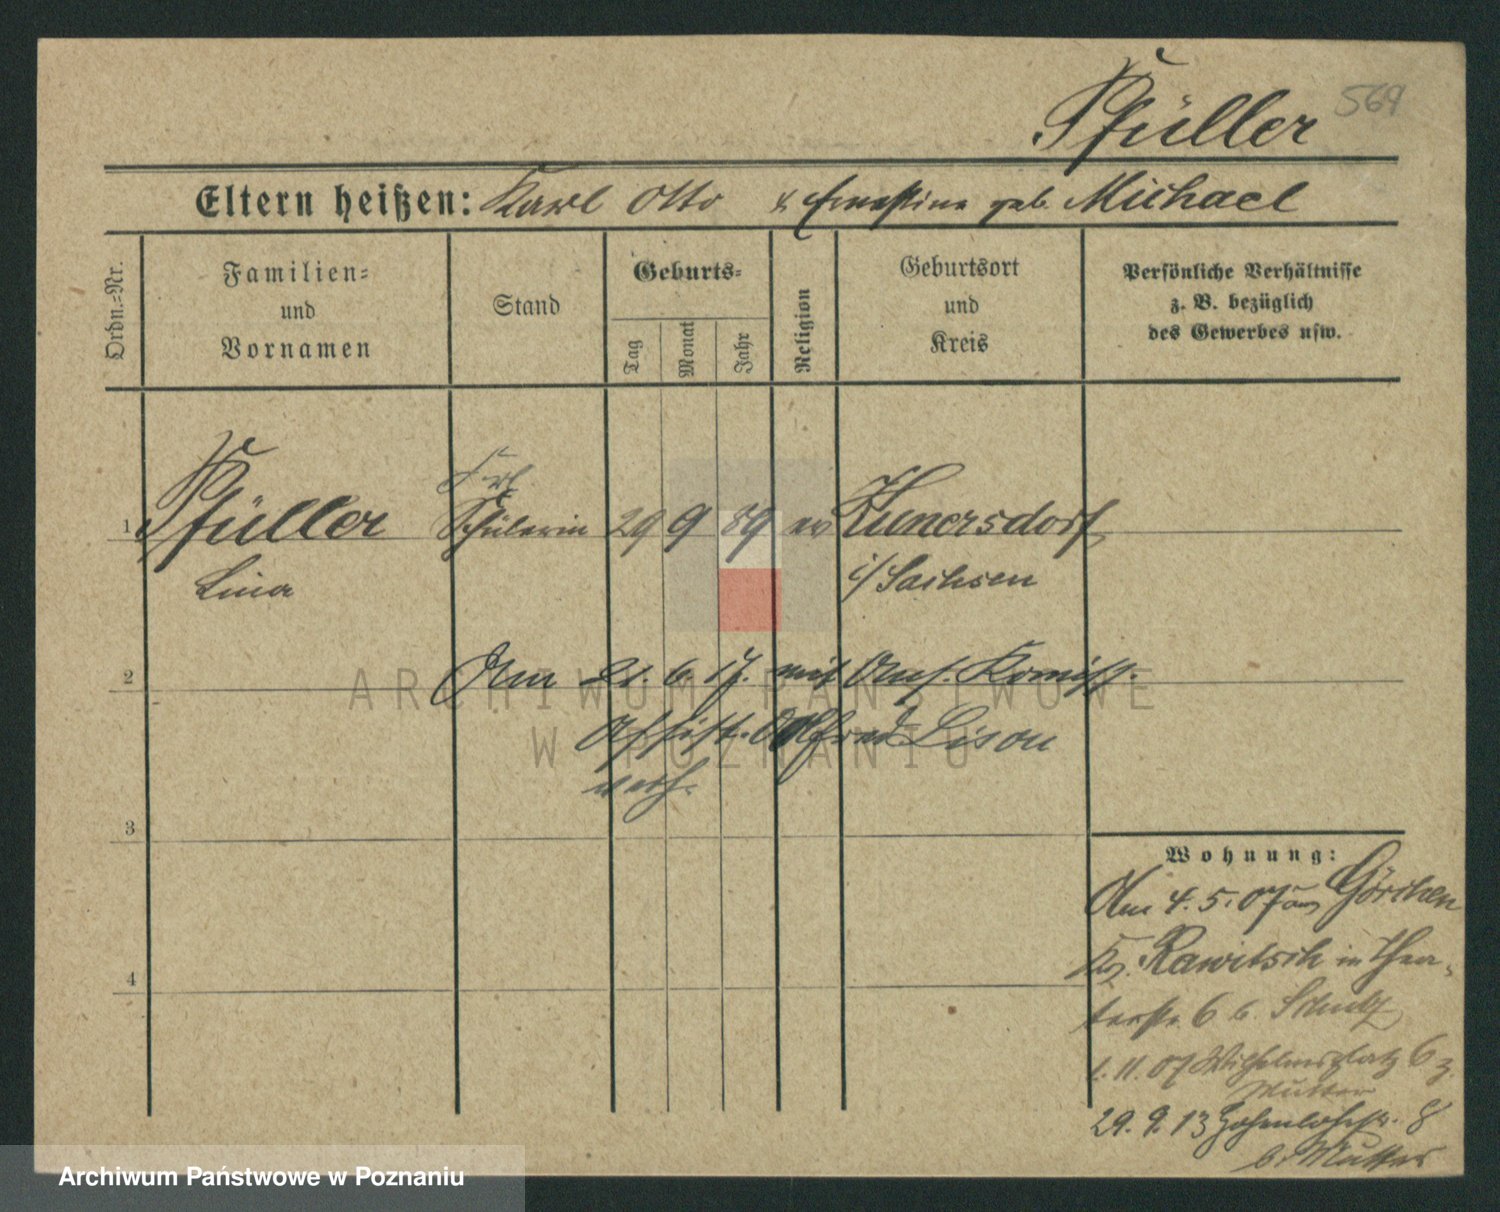 Pfüller 569
Eltern heißen: Karl Otto & Ernestine geb. Michael
Ordn.=Nr.
Familien=
und
Vornamen
Stand
Geburts=
Tag
Monat
Jahr
Religion
Geburtsort
und
Kreis
Persönliche Verhältnisse
z. B. bezüglich
des Gewerbes usw.
Frl.
1 Pfüller Schülerin 29 9 89 ev Kunersdorf
Lina i/Sachsen
2 Am 21. 6. 17. mit
Assist. Alfred Lison
verh.
3
4
Wohnung:
Am 4. 5. 07 aus Görchen
Kr. Rawitsch in Thea-
terstr. 6 b. Schulz
1. 11. 07 Wilhelmsplatz 6 z.
Mutter
29. 9. 13 Hohenlohestr. 8
b. Mutter
ARCHIWUM PAŃSTWOWE
W POZNANIU
Archiwum Państwowe w Poznaniu